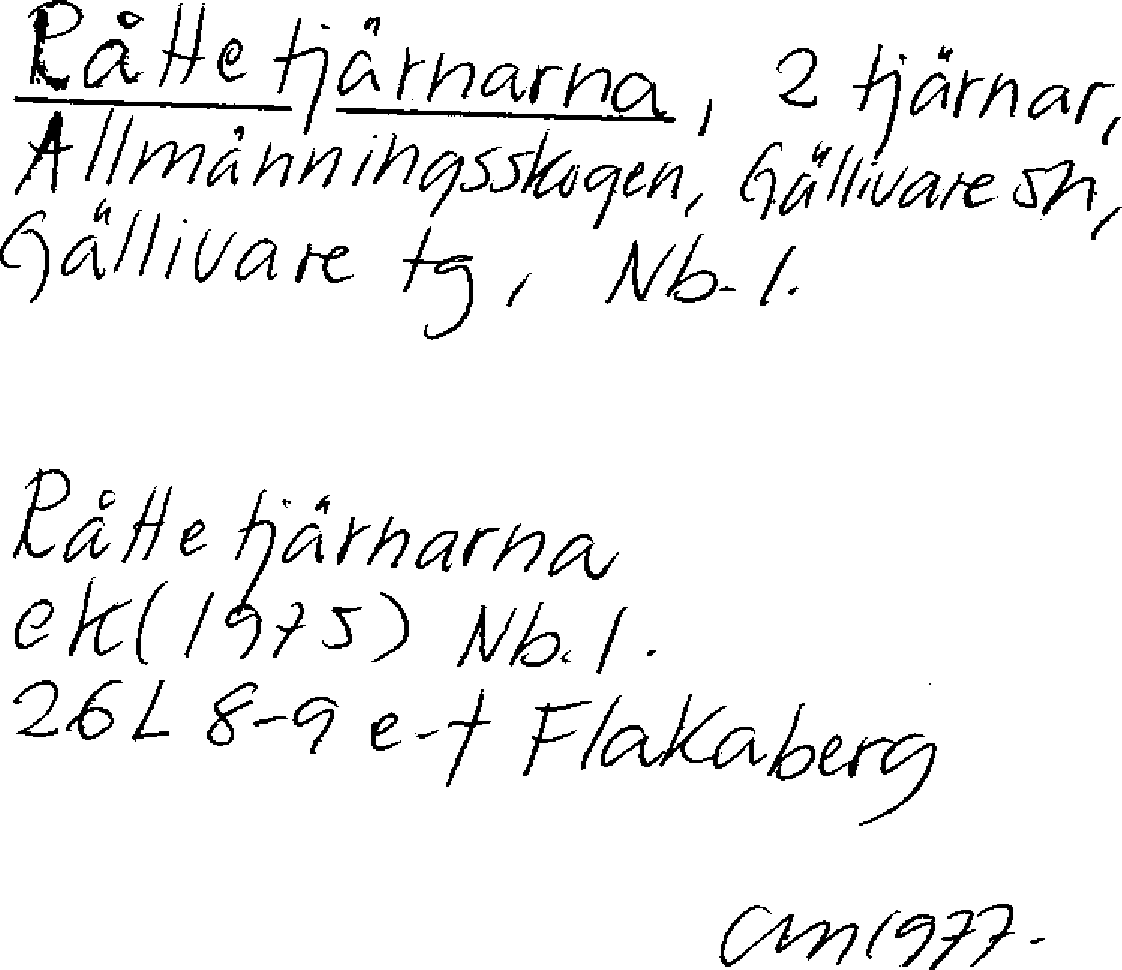 Råttetjärnarna, 2 tjärnar,
Allmänningsskogen, Gällivare sn,
Gällivare tg, Nb. l.
Råttetjärnarna
ek (1975) Nb. l.
26L 8-9 e-f Flakaberg
CM 1977.